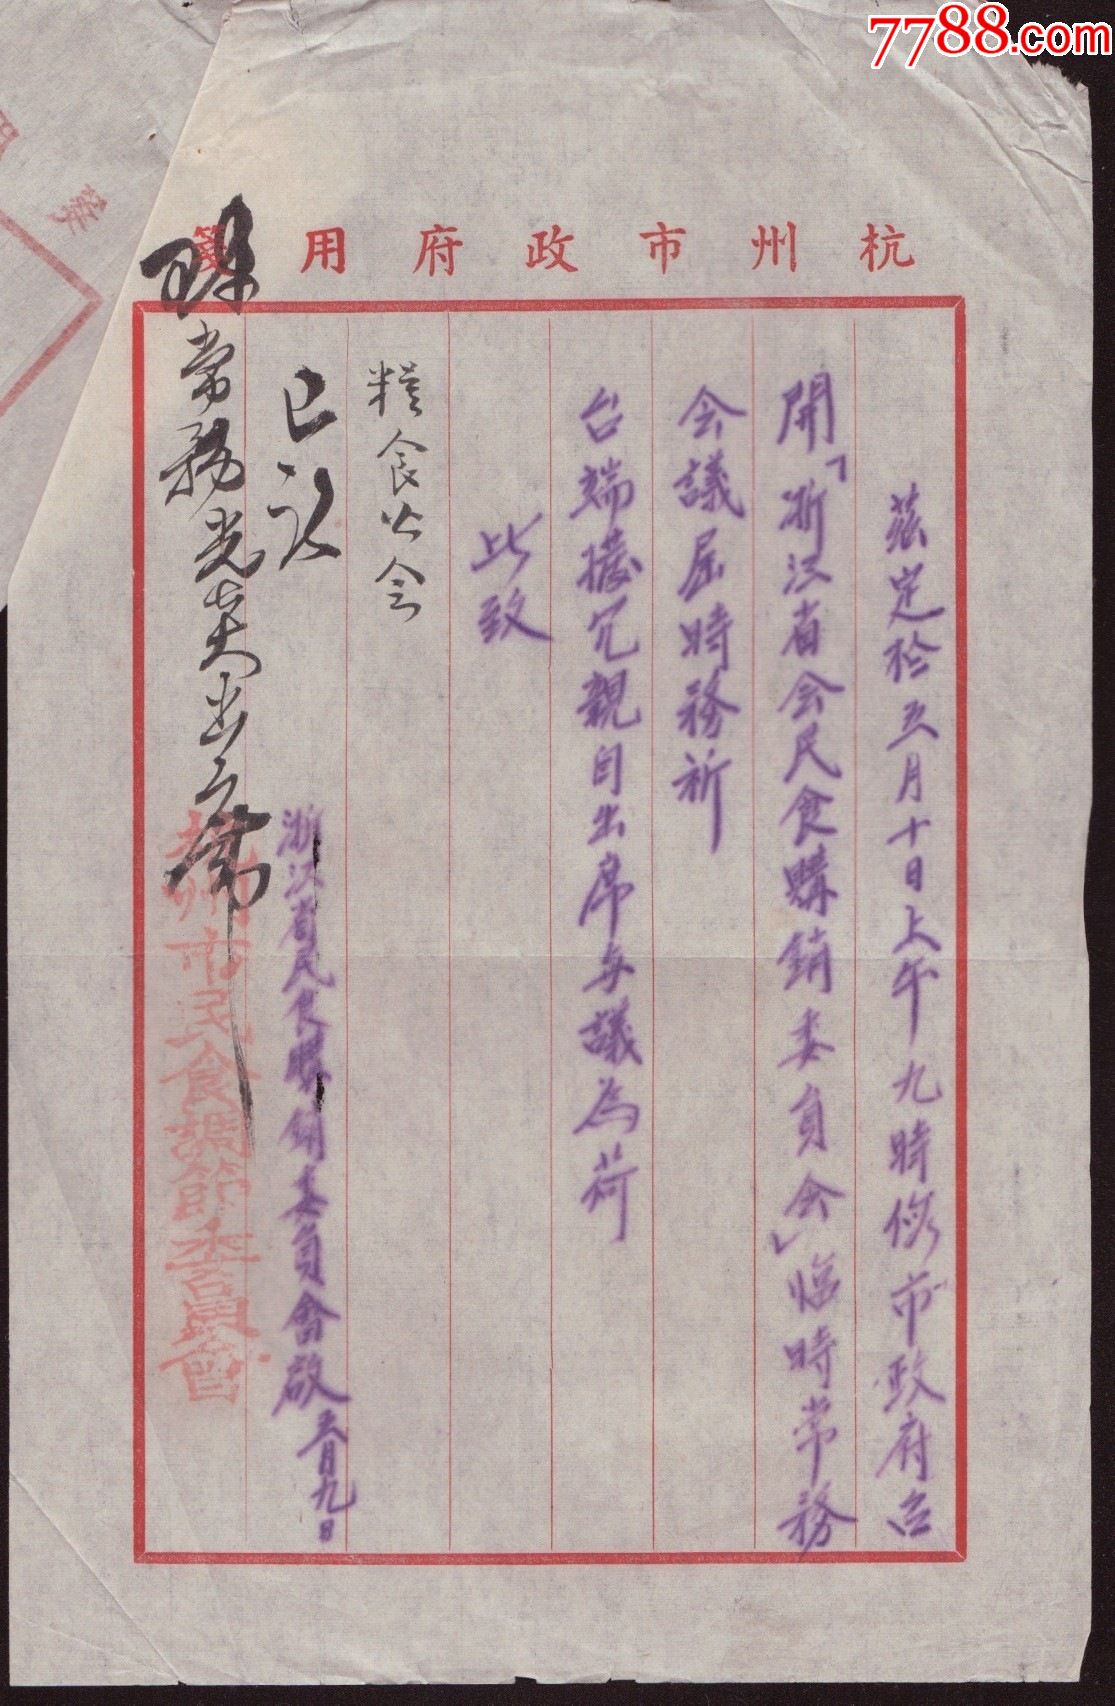 7788.com
杭州市政府用箋
茲定於五月十日上午九時假市政府召
開「浙江省会民食購銷委員会」臨時常務
会議屆時務祈
台端撥冗親自出席与議為荷
此致
糧食公会
浙江省民食購銷委員會啟 五月九日
杭州市民食調節委員會
常務 出席